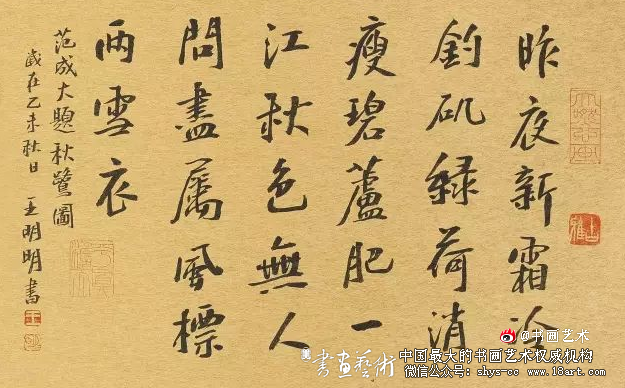 昨夜新霜冷
釣矶緑荷消
瘦碧蘆肥一
江秋色無人
問盡屬風標
兩雪衣
范成大題秋鷺圖
歲在乙未秋日 王明明書
@书画艺术
書画藝術
中国最大的书画艺术权威机构
微信公众号: shys-cc www.18art.com